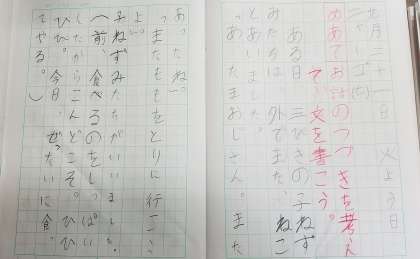 七月二十一日 火よう日
めあてお話のつづきを考え
て、文を書こう。
ある日、三びきの子ねず
みたちは、外でまたねこ
とあいました。
「あ、たまおじさん。また
あったね。」
「またももをとりに行こうよ。」
子ねずみたちがいいました。
（前、食べるのをしっぱい
したからこんどこそ。ひひひひ。
今日、ぜったいに食
てやる。）